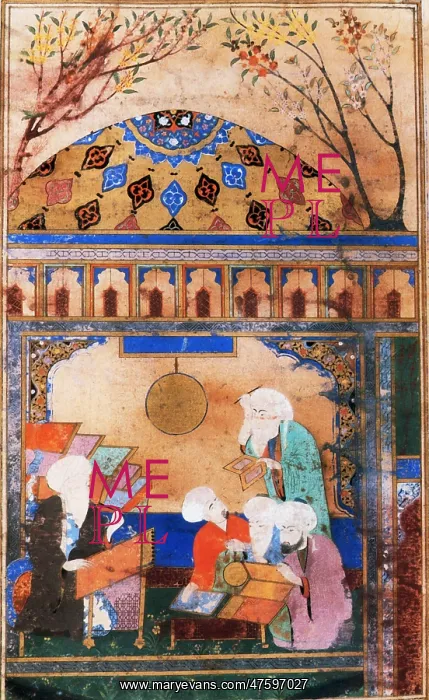 ME
PL
ME
PL
www.maryevans.com/47597027